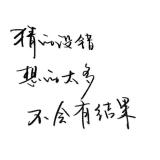 猜的没错
想的太多
不会有结果